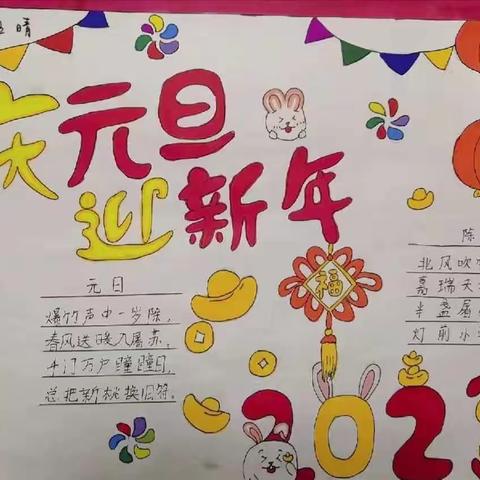 晴
庆元旦
迎新年
福
元日
爆竹声中一岁除,
春风送暖入屠苏,
千门万户瞳瞳日,
总把新桃换旧符。
除
北风吹
嘉瑞天
半盏屠
灯前小
2023